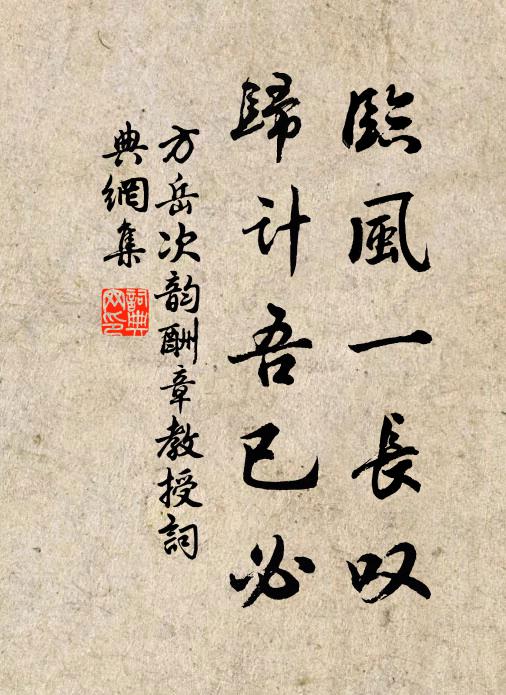 臨風一長叹
歸計吾已必
方岳次韵酬章教授詞
典網集
詞典
网印